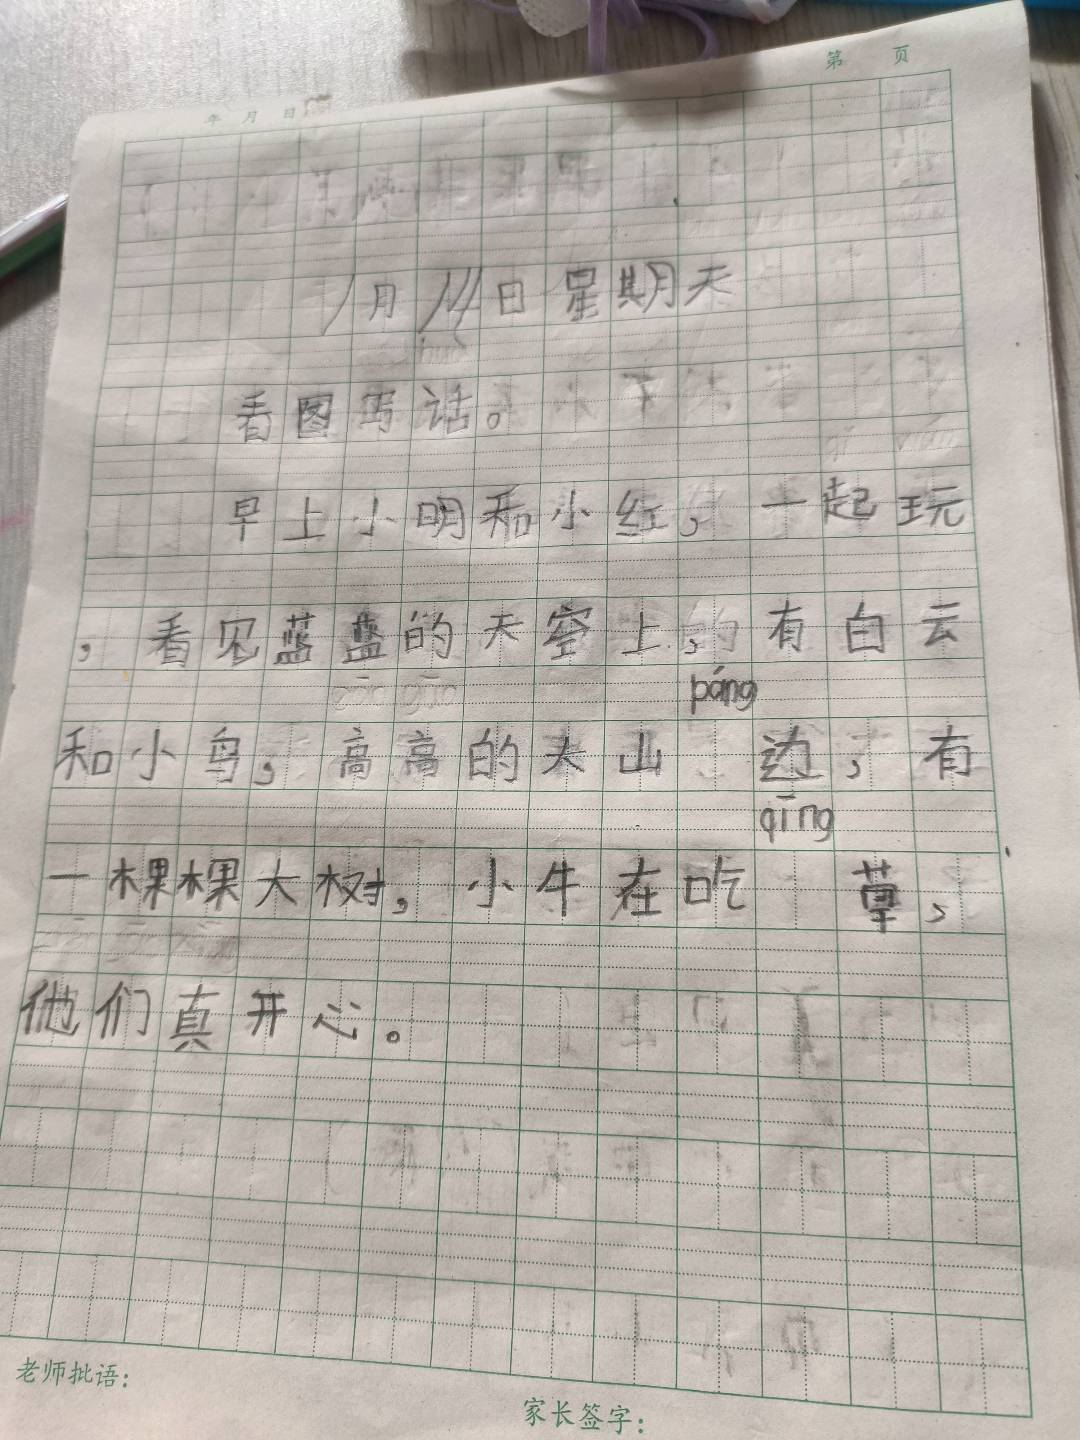 年 月 日
第 页
1月14日星期天
看图写话。
早上小明和小红,一起玩
,看见蓝蓝的天空上,有白云
páng
和小鸟,高高的大山 边,有
qīng
一棵棵大树,小牛在吃 草,
他们真开心。
老师批语:
家长签字: